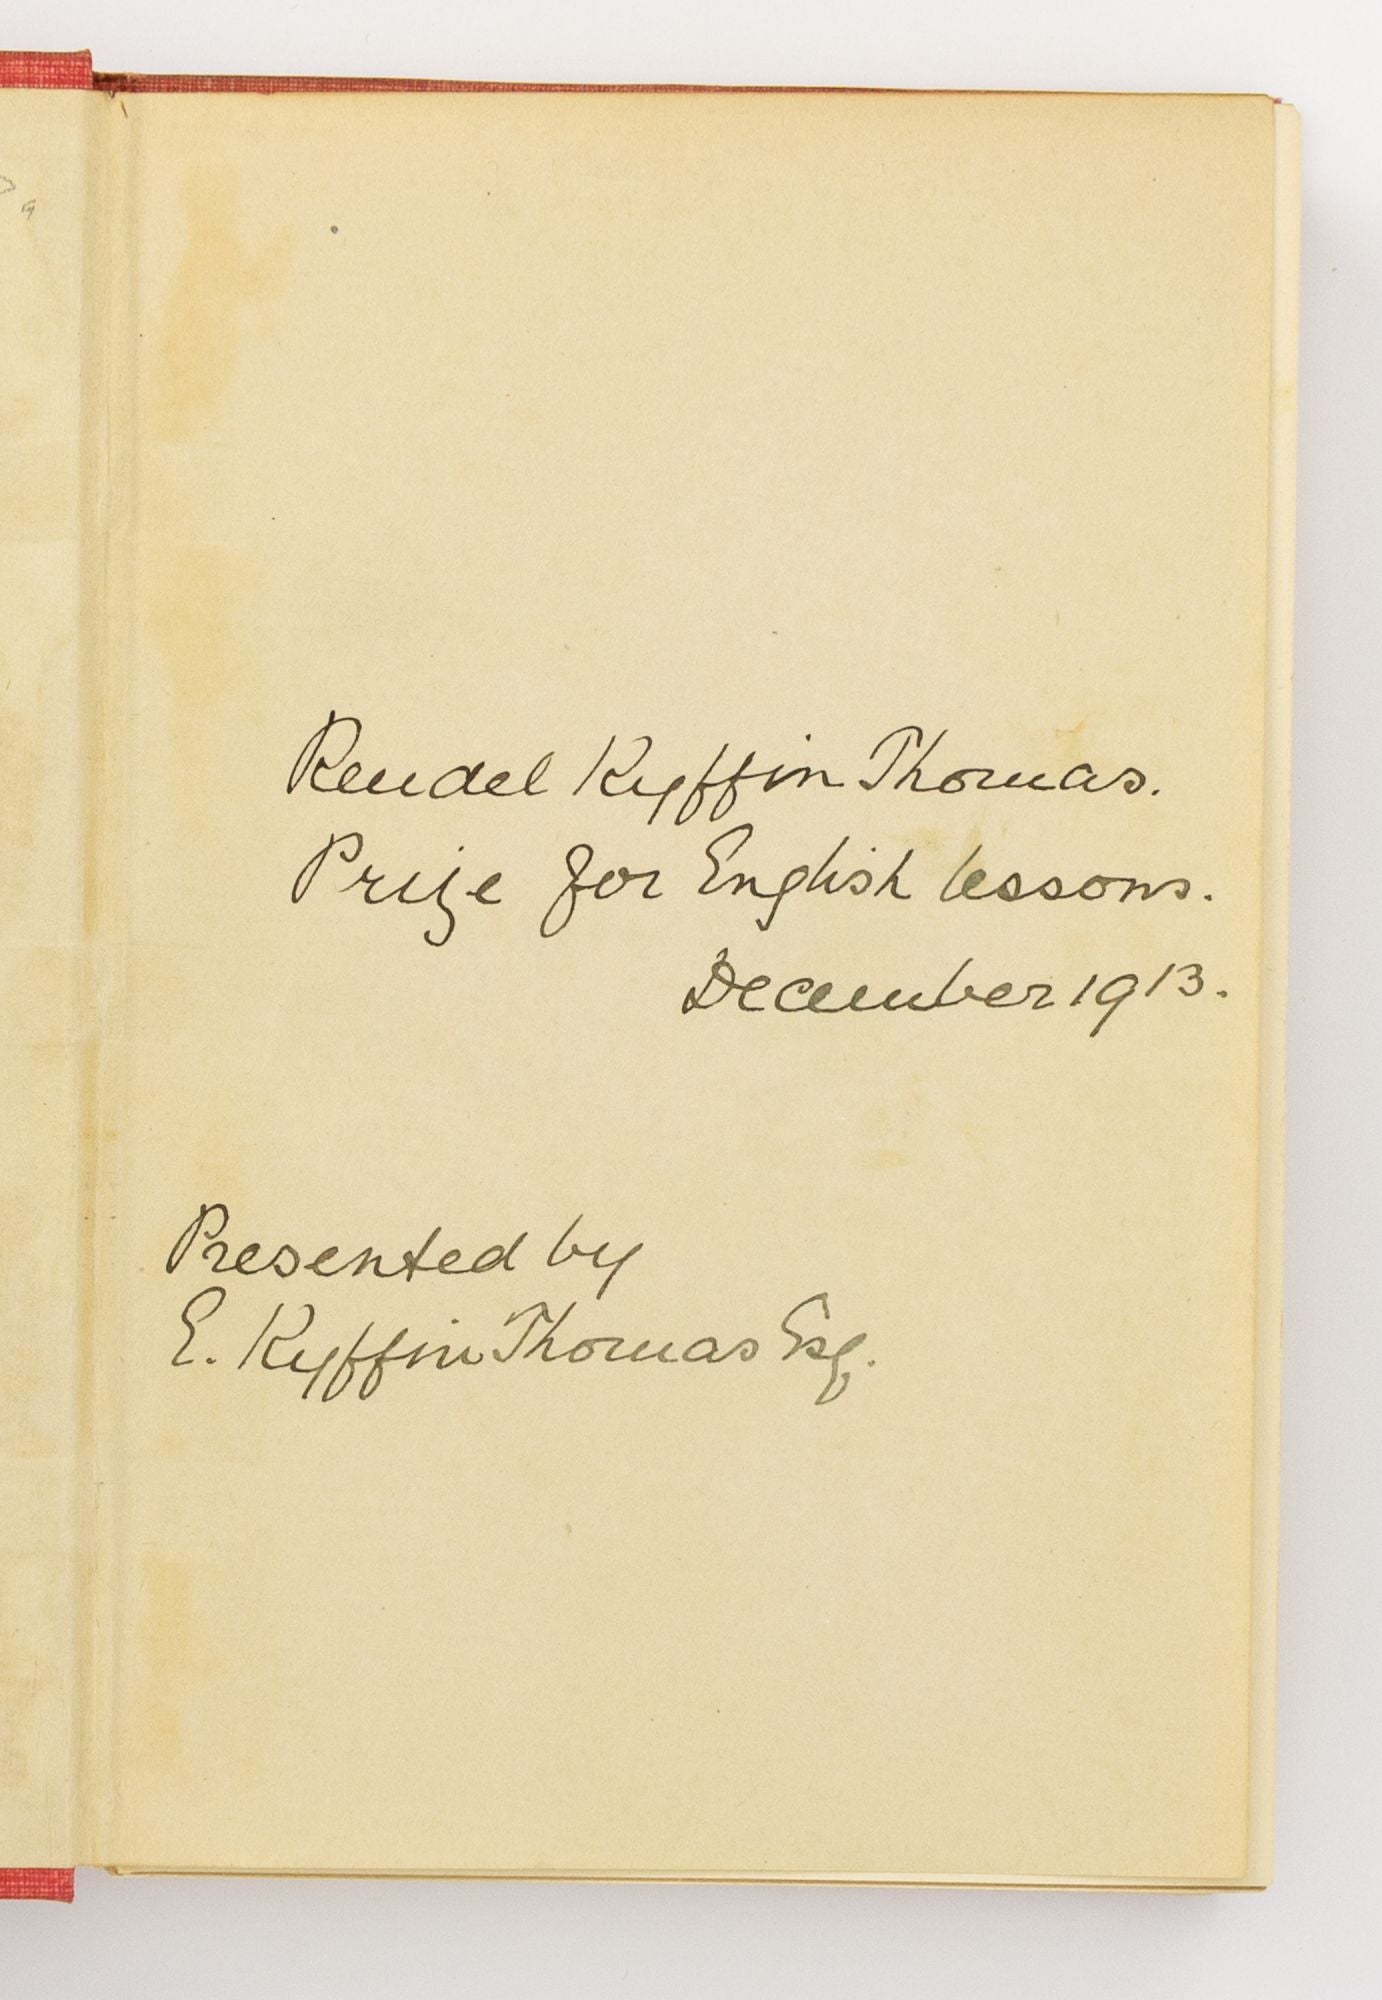 Rendel Kyffin Thomas.
Prize for English lessons.
December 1913.
Presented by
E. Kyffin Thomas Esq.